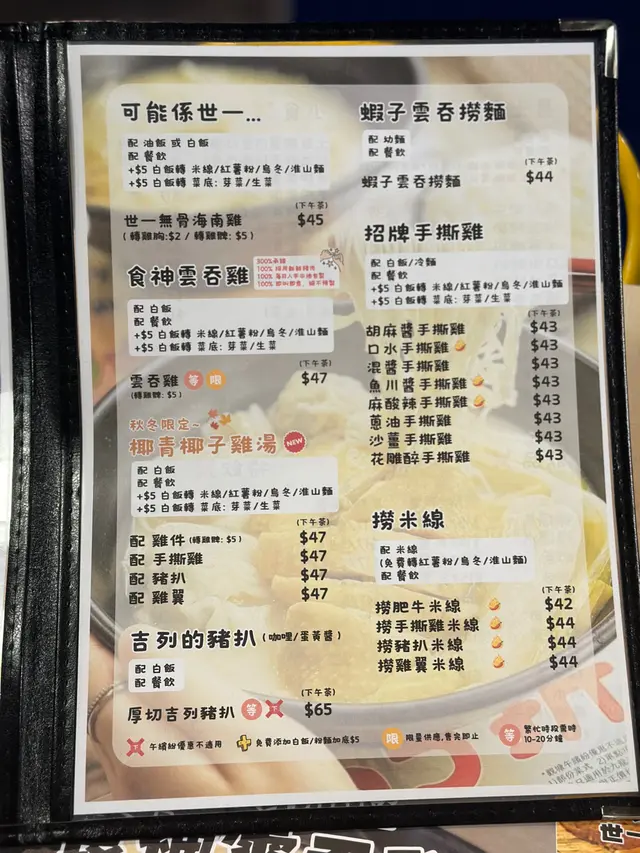 可能係世一...
配 油飯 或 白飯
配 餐飲
+$5 白飯轉 米線/紅薯粉/烏冬/淮山麵
+$5 白飯轉 菜底: 芽菜/生菜
(下午茶)
世一無骨海南雞 $45
(轉雞胸:$2 / 轉雞髀: $5)
食神雲吞雞
配 白飯
配 餐飲
+$5 白飯轉 米線/紅薯粉/烏冬/淮山麵
+$5 白飯轉 菜底: 芽菜/生菜
(下午茶)
雲吞雞 等 限 $47
(轉雞髀: $5)
秋冬限定~
椰青椰子雞湯 NEW
配 白飯
配 餐飲
+$5 白飯轉 米線/紅薯粉/烏冬/淮山麵
+$5 白飯轉 菜底: 芽菜/生菜
(下午茶)
配 雞件 (轉雞髀: $5) $47
配 手撕雞 $47
配 豬扒 $47
配 雞翼 $47
吉列的豬扒 (咖哩/蛋黃醬)
配 白飯
配 餐飲
(下午茶)
厚切吉列豬扒 等 下 $65
蝦子雲吞撈麵
配 幼麵
配 餐飲
(下午茶)
蝦子雲吞撈麵 $44
招牌手撕雞
配 白飯/冷麵
配 餐飲
+$5 白飯轉 米線/紅薯粉/烏冬/淮山麵
+$5 白飯轉 菜底: 芽菜/生菜
(下午茶)
胡麻醬手撕雞 $43
口水手撕雞 $43
混醬手撕雞 $43
魚川醬手撕雞 $43
麻酸辣手撕雞 $43
蔥油手撕雞 $43
沙薑手撕雞 $43
花雕醉手撕雞 $43
撈米線
配 米線
(免費轉紅薯粉/烏冬/淮山麵)
配 餐飲
(下午茶)
撈肥牛米線 $42
撈手撕雞米線 $44
撈豬扒米線 $44
撈雞翼米線 $44
下 午繽紛優惠不適用
免費添加白飯/粉麵加底$5
限 限量供應,售完即止
等 繁忙時段需時
10-20分鐘